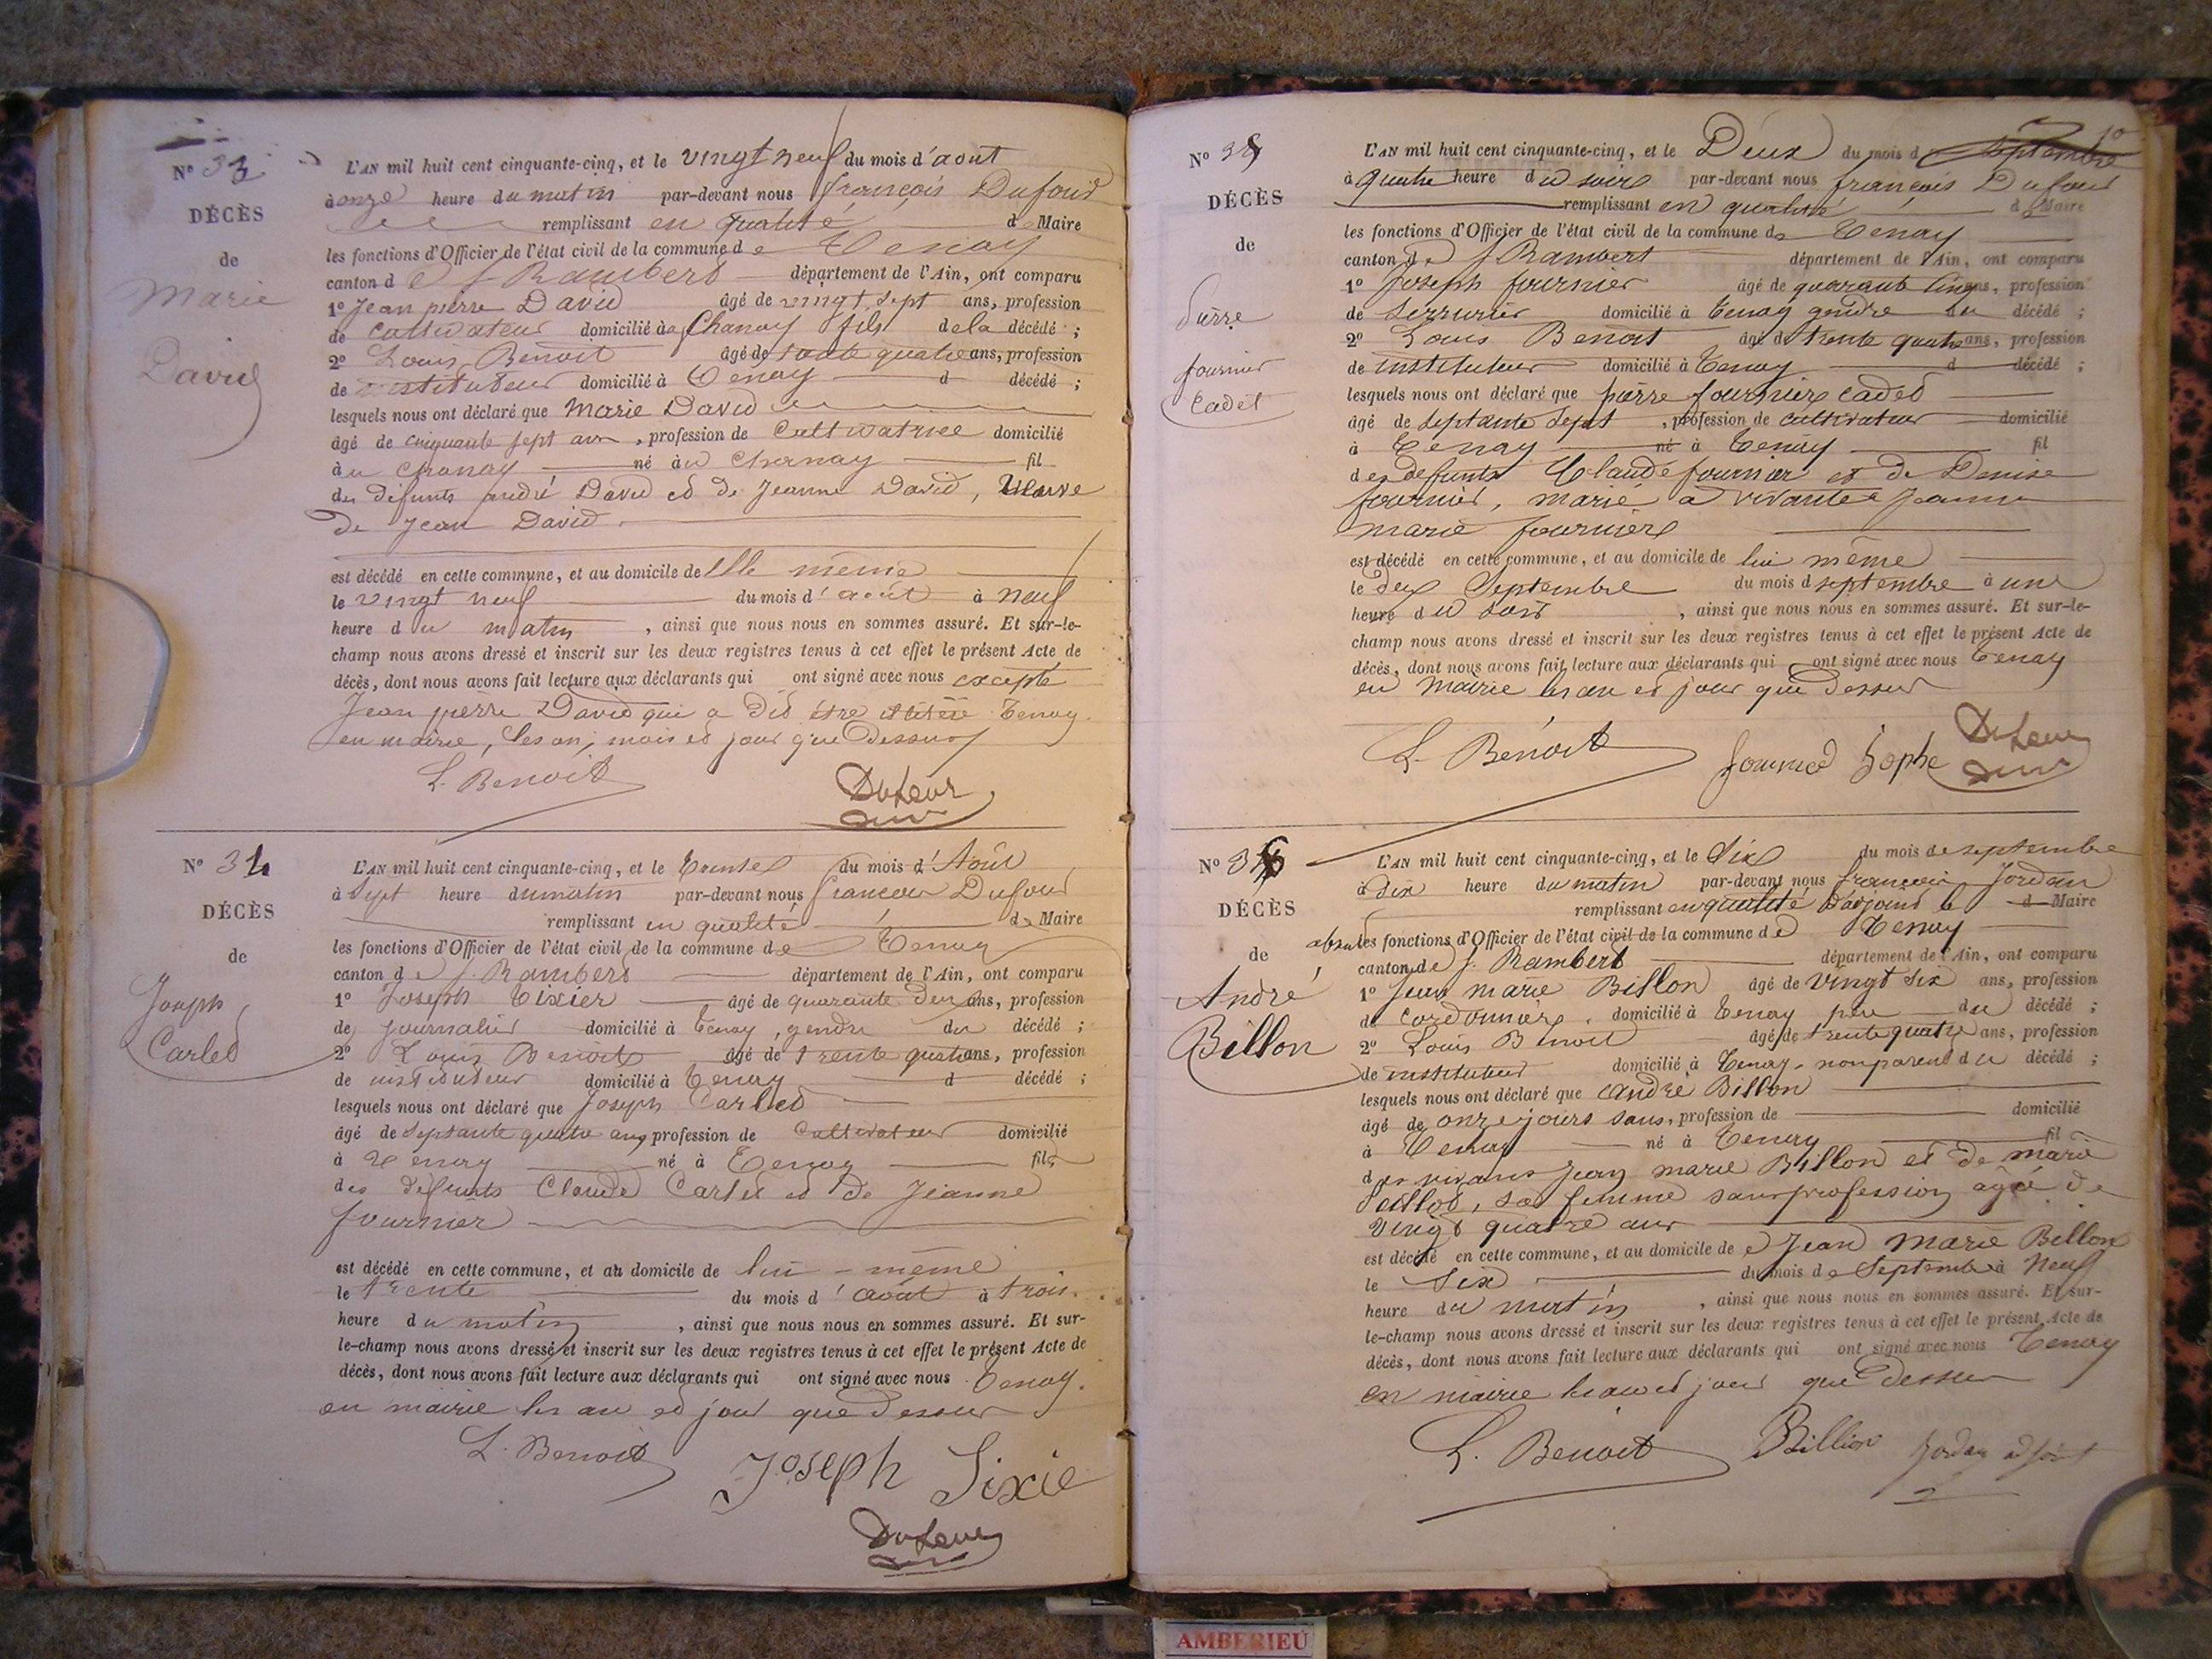 Nº 33
DÉCÈS
de
Marie
David
L'AN mil huit cent cinquante-cinq, et le vingt neuf du mois d'août
à onze heure du matin par-devant nous françois Dufour
remplissant en qualité de Maire
les fonctions d'Officier de l'état civil de la commune de Tenay
canton de St Rambert département de l'Ain, ont comparu
1º Jean pierre David âgé de vingt sept ans, profession
de cultivateur domicilié à Chanay fils de la décédé ;
2º Louis Benoit âgé de trente quatre ans, profession
de instituteur domicilié à Tenay d décédé ;
lesquels nous ont déclaré que Marie David
âgé de cinquante sept ans, profession de Cultivatrice domicilié
à Chanay né à Chanay fil
des défunts andré David et de Jeanne David, Veuve
de Jean David.
est décédé en cette commune, et au domicile de Elle même
le vingt neuf du mois d'août à neuf
heure du matin, ainsi que nous nous en sommes assuré. Et sur-le-
champ nous avons dressé et inscrit sur les deux registres tenus à cet effet le présent Acte de
décès, dont nous avons fait lecture aux déclarants qui ont signé avec nous excepté
Jean pierre David qui a dit être illitéré Tenay
en mairie, les an, mois et jour que Dessus
L. Benoit
Dufour
Nº 34
DÉCÈS
de
Joseph
Carled
L'AN mil huit cent cinquante-cinq, et le Trente du mois d'Août
à Sept heure du matin par-devant nous francois Dufour
remplissant en qualité de Maire
les fonctions d'Officier de l'état civil de la commune de Tenay
canton de St Rambert département de l'Ain, ont comparu
1º Joseph Tixier âgé de quarante deux ans, profession
de journalier domicilié à Tenay, gendre du décédé ;
2º Louis Benoit âgé de trente quatre ans, profession
de instituteur domicilié à Tenay d décédé ;
lesquels nous ont déclaré que Joseph Carled
âgé de Septante quatre ans, profession de Cultivateur domicilié
à Tenay né à Tenay fils
des défunts Claude Carled et de Jeanne
fournier
est décédé en cette commune, et au domicile de lui-même
le trente du mois d'août à trois
heure du matin, ainsi que nous nous en sommes assuré. Et sur-
le-champ nous avons dressé et inscrit sur les deux registres tenus à cet effet le présent Acte de
décès, dont nous avons fait lecture aux déclarants qui ont signé avec nous Tenay.
en mairie les an et jour que Dessus
L. Benoit
Joseph Tixie
Dufour
10
Nº 35
DÉCÈS
de
Pierre
fournier
Cadet
L'AN mil huit cent cinquante-cinq, et le Deux du mois de Septembre
à quatre heure du soir par-devant nous françois Dufour
remplissant en qualité de Maire
les fonctions d'Officier de l'état civil de la commune de Tenay
canton de St Rambert département de l'Ain, ont comparu
1º Joseph fournier âgé de quarante cinq ans, profession
de Serrurier domicilié à Tenay gendre du décédé ;
2º Louis Benoit âgé de trente quatre ans, profession
de instituteur domicilié à Tenay d décédé ;
lesquels nous ont déclaré que pierre fournier cadet
âgé de Septante Sept, profession de cultivateur domicilié
à Tenay né à Tenay fil
des défunts Claude fournier et de Denise
fournier, marié à vivante Jeanne
marie fournier
est décédé en cette commune, et au domicile de lui même
le deux Septembre du mois de septembre à une
heure du soir, ainsi que nous nous en sommes assuré. Et sur-le-
champ nous avons dressé et inscrit sur les deux registres tenus à cet effet le présent Acte de
décès, dont nous avons fait lecture aux déclarants qui ont signé avec nous Tenay
en Mairie les an et jour que Dessus
L. Benoit
Dufour
Nº 36
DÉCÈS
de
André
Billon
L'AN mil huit cent cinquante-cinq, et le Six du mois de septembre
à dix heure du matin par-devant nous françois Jordan
remplissant en qualité D'adjoint le de Maire
absent les fonctions d'Officier de l'état civil de la commune de Tenay
canton de St Rambert département de l'Ain, ont comparu
1º Jean marie Billon âgé de vingt six ans, profession
de cordonnier, domicilié à Tenay père du décédé ;
2º Louis Benoit âgé de trente quatre ans, profession
de instituteur domicilié à Tenay, non parent du décédé ;
lesquels nous ont déclaré que André Billon
âgé de onze jours sans, profession de domicilié
à Tenay né à Tenay fil
des vivans Jean marie Billon et de marie
sa femme sans profession agée de
vingt quatre ans
est décédé en cette commune, et au domicile de Jean Marie Billon
le Six du mois de Septembre à Neuf
heure du matin, ainsi que nous nous en sommes assuré. Et sur-
le-champ nous avons dressé et inscrit sur les deux registres tenus à cet effet le présent Acte de
décès, dont nous avons fait lecture aux déclarants qui ont signé avec nous Tenay
en mairie les an et jour que Dessus
L. Benoit
Billion
Jordan adjoint
AMBERIEU